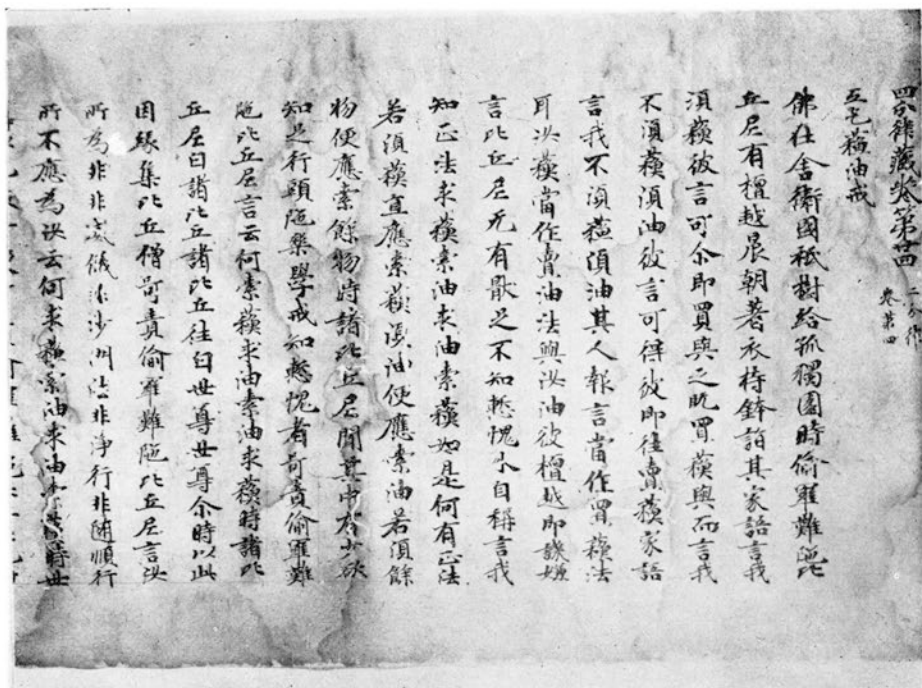 四分律藏卷第廿四 二分律
卷第四
互乞蘓油戒
佛在舍衛國祇樹給孤獨園時偷羅難陁比
丘尼有檀越晨朝著衣持鉢詣其家語言我
須蘓彼言可尒即買與之既買蘓與而言我
不須蘓須油彼言可得彼即往賣蘓家語
言我不須蘓須油其人報言當作買蘓法
耳汝蘓當作賣油法與汝油彼檀越即譏嫌
言比丘尼无有猒足不知慙愧外自稱言我
知正法求蘓索油求油索蘓如是何有正法
若須蘓直應索蘓須油便應索油若須餘
物便應索餘物時諸比丘尼聞其中有少欲
知足行頭陁樂學戒知慙愧者呵責偷羅難
陁比丘尼言云何索蘓求油索油求蘓時諸比
丘尼白諸比丘諸比丘往白世尊世尊尒時以此
因緣集比丘僧呵責偷羅難陁比丘尼言汝
所為非非威儀非沙門法非淨行非隨順行
所不應為汝云何求蘓索油求油索蘓時世